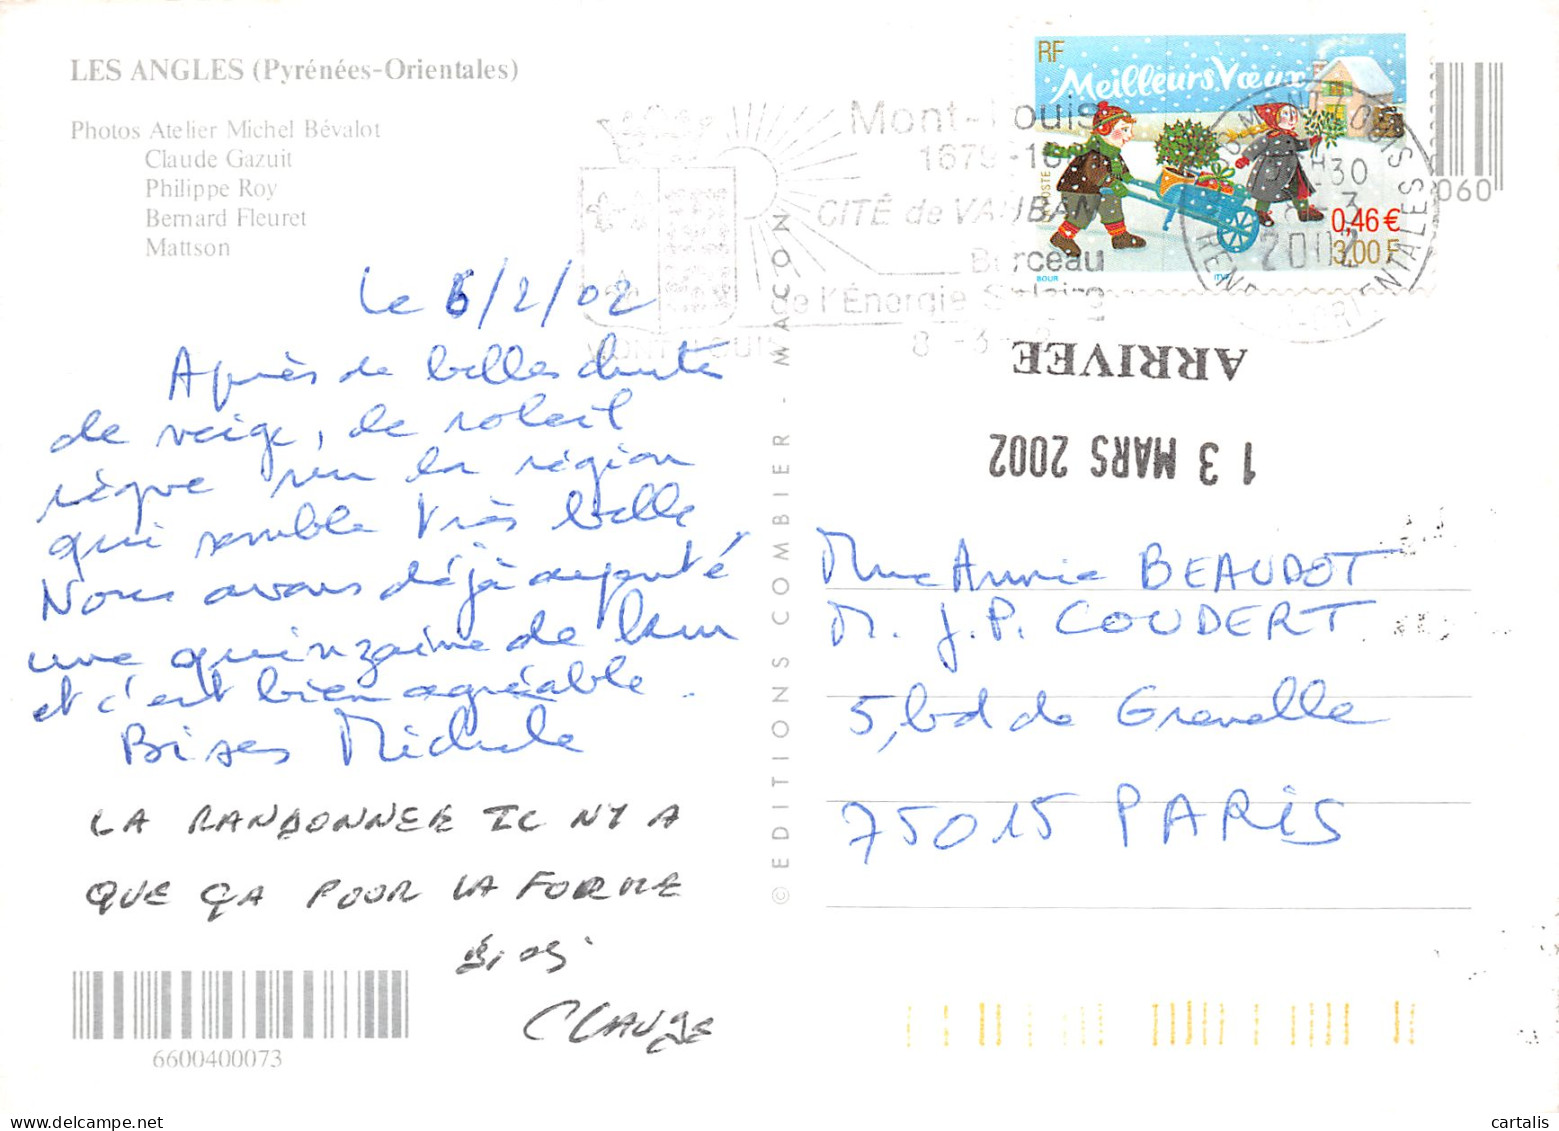 LES ANGLES (Pyrénées-Orientales)
Photos Atelier Michel Bévalot
Claude Gazuit
Philippe Roy
Bernard Fleuret
Mattson
RF
Meilleurs Vœux
0,46 €
3,00 F
BOUR
ITVF
LA POSTE
060
Mont-Louis
1679-
CITÉ de VAUBAN
Berceau
de l'Énergie Solaire
8 -3-
MONT-LOUIS
MONT LOUIS
30
8 -3
2002
PYRENEES-ORIENTALES
ARRIVEE
13 MARS 2002
Le 6/2/02
Après de belles chutes
de neige, le soleil
règne sur la région
qui semble très belle
Nous avons déjà
une quinzaine de
et c'est bien agréable.
Bises Michele
LA RANDONNEE IL N'Y A
QUE ÇA POUR LA FORME
CLAUDE
© EDITIONS COMBIER - MACON
Mme Annie BEAUDOT
M. J.P. COUDERT
5, bd de Grenelle
75015 PARIS
6600400073
cartalis